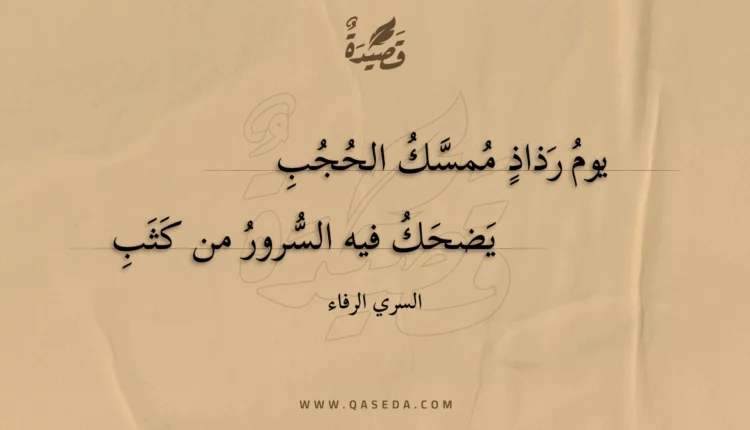 قَصِيْدَةٌ
يومُ رَذاذٍ مُمسَّكُ الحُجُبِ
يَضحَكُ فيه السُّرورُ من كَثَبِ
السري الرفاء
WWW.QASEDA.COM